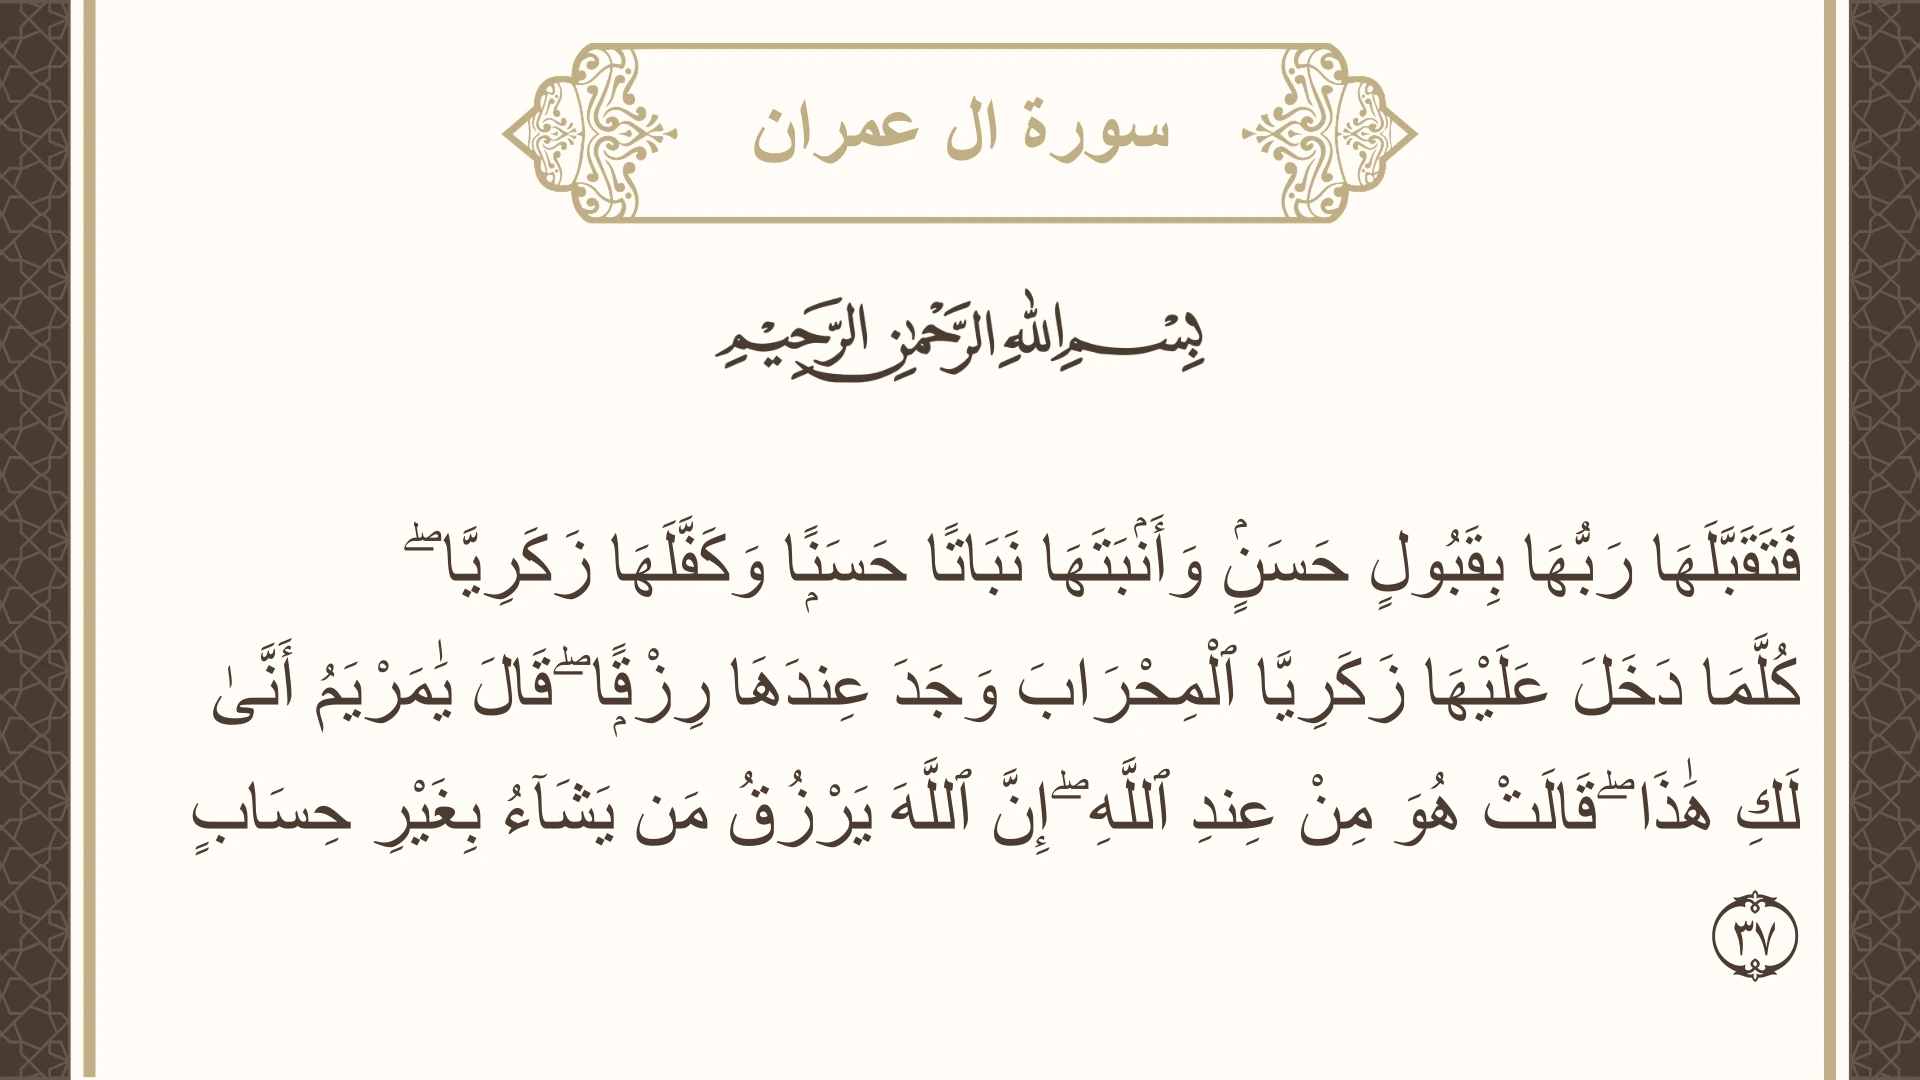 سورة ال عمران
بِسْمِ اللهِ الرَّحْمٰنِ الرَّحِيْمِ
فَتَقَبَّلَهَا رَبُّهَا بِقَبُولٍ حَسَنٍۢ وَأَنۢبَتَهَا نَبَاتًا حَسَنًۭا وَكَفَّلَهَا زَكَرِيَّا ۖ
كُلَّمَا دَخَلَ عَلَيْهَا زَكَرِيَّا ٱلْمِحْرَابَ وَجَدَ عِندَهَا رِزْقًۭا ۖ قَالَ يَٰمَرْيَمُ أَنَّىٰ
لَكِ هَٰذَا ۖ قَالَتْ هُوَ مِنْ عِندِ ٱللَّهِ ۖ إِنَّ ٱللَّهَ يَرْزُقُ مَن يَشَآءُ بِغَيْرِ حِسَابٍ
٣٧